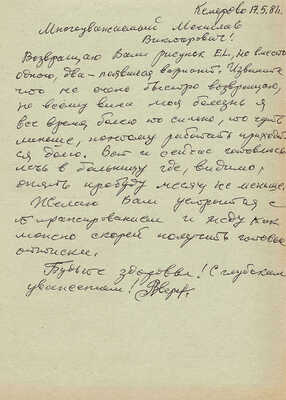 Кемерово 17.5.81.
Многоуважаемый
Викторович!
Возвращаю Вам рисунок EL, но вместо
одного, два - появился вариант. Извините
что не очень быстро возвращаю,
но всему вина моя болезнь я
все время болею то сильно, то чуть
меньше, поэтому работать приходит-
ся мало. Вот и сейчас готовлюсь
лечь в больницу где, видимо,
опять пройду месяц не меньше.
Желаю Вам устроиться с
и жду как
можно скорей получить готовые
оттиски.
Будьте здоровы! С глубоким
уважением!